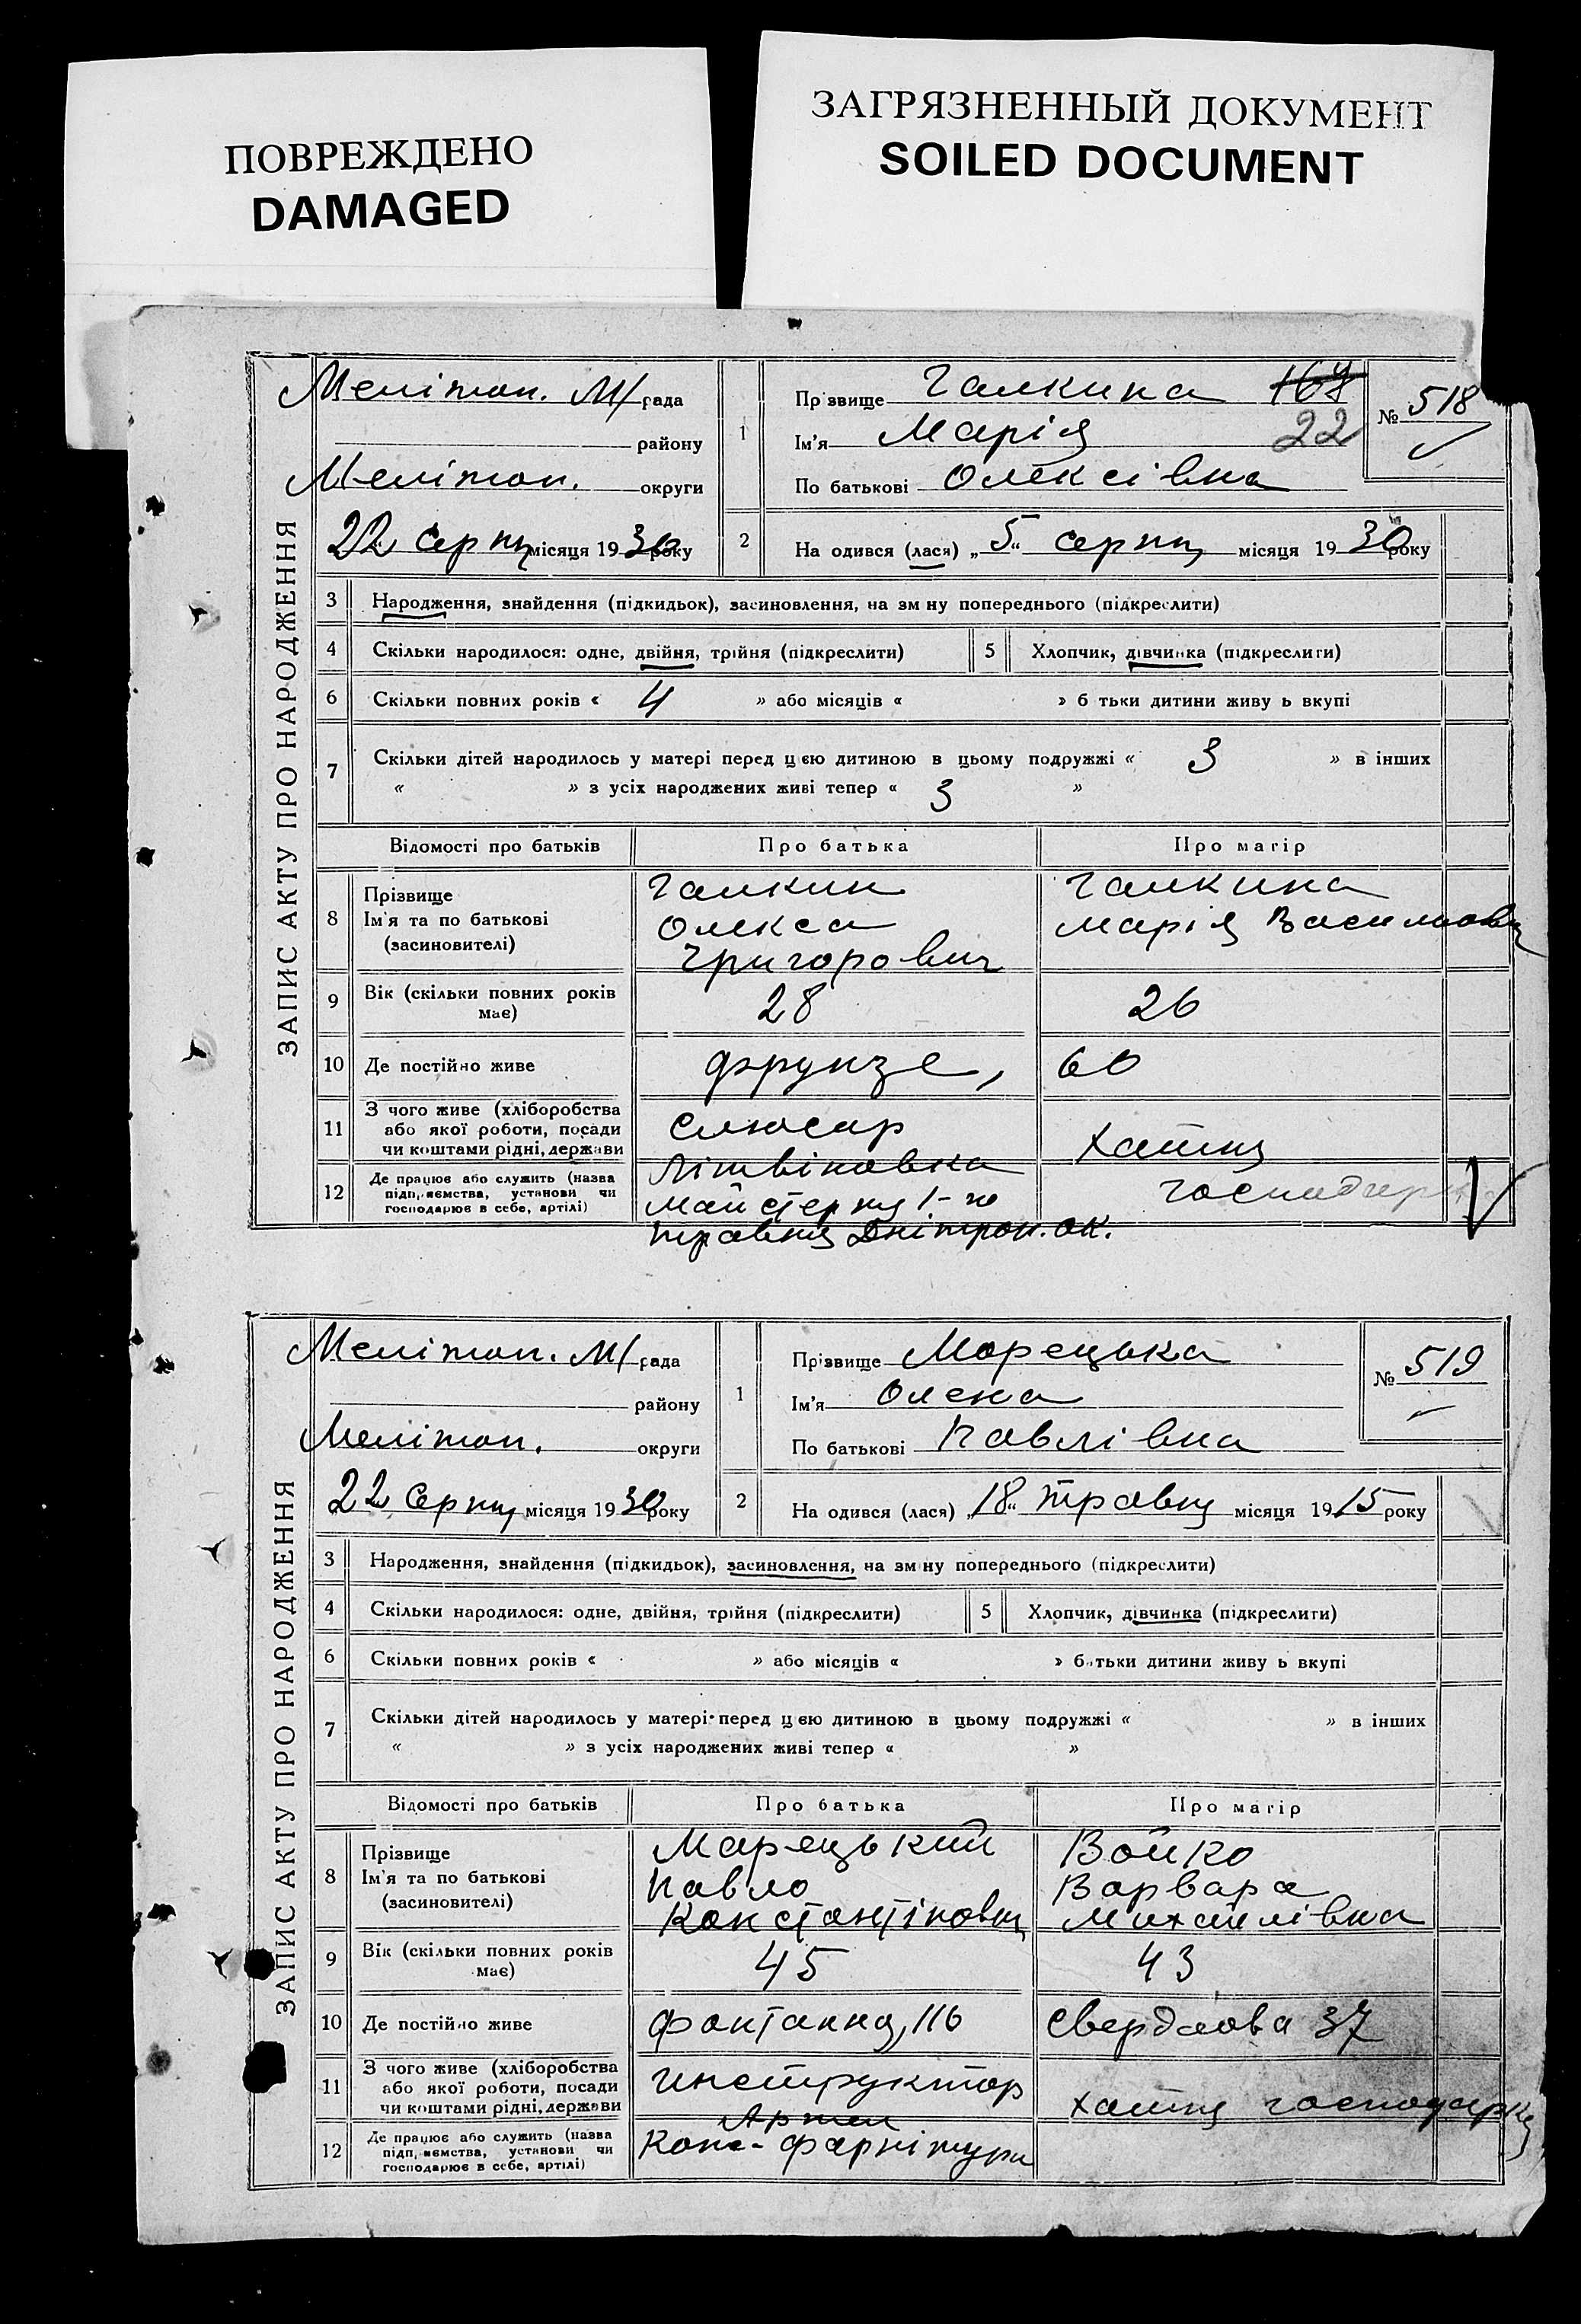 ПОВРЕЖДЕНО
DAMAGED
ЗАГРЯЗНЕННЫЙ ДОКУМЕНТ
SOILED DOCUMENT
ЗАПИС АКТУ ПРО НАРОДЖЕННЯ
Мелітоп. М/рада
району
Мелітоп. округи
22 Серпня місяця 1930 року
1
Прізвище Галкина 167
Ім'я Марія 22
По батькові Олексівна
№ 518
2
На одився (лася) „5“ серпня місяця 1930 року
3 Народження, знайдення (підкидьок), засиновлення, на зм ну попереднього (підкреслити)
4 Скільки народилося: одне, двійня, трійня (підкреслити) 5 Хлопчик, дівчинка (підкреслити)
6 Скільки повних років « 4 » або місяців « » б тьки дитини живу ь вкупі
7 Скільки дітей народилось у матері перед цією дитиною в цьому подружжі « 3 » в інших
« » з усіх народжених живі тепер « 3 »
Відомості про батьків Про батька Про матір
8 Прізвище Ім'я та по батькові (засиновителі)
Галкин Олекса Григорович
Галкина Марія Васильовн
9 Вік (скільки повних років має) 28 26
10 Де постійно живе Фрунзе, 60
11 З чого живе (хліборобства або якої роботи, посади чи коштами рідні, держави
Слюсар
Хатня господар
12 Де працює або служить (назва підприємства, установи чи господарює в себе, артілі)
Літвіновка
майстерня 1-го
травня Дніпроп. ок.
ЗАПИС АКТУ ПРО НАРОДЖЕННЯ
Мелітоп. М/рада
району
Мелітоп. округи
22 Серпня місяця 1930 року
1
Прізвище Морецька
Ім'я Олена
По батькові Павлівна
№ 519
2
На одився (лася) „18“ травня місяця 1915 року
3 Народження, знайдення (підкидьок), засиновлення, на зм ну попереднього (підкреслити)
4 Скільки народилося: одне, двійня, трійня (підкреслити) 5 Хлопчик, дівчинка (підкреслити)
6 Скільки повних років « » або місяців « » батьки дитини живу ь вкупі
7 Скільки дітей народилось у матері перед цією дитиною в цьому подружжі « » в інших
« » з усіх народжених живі тепер « »
Відомості про батьків Про батька Про матір
8 Прізвище Ім'я та по батькові (засиновителі)
Марецький Павло Константінович
Бойко Варвара Михайлівна
9 Вік (скільки повних років має) 45 43
10 Де постійно живе Фонтанна, 116 Свердлова 37
11 З чого живе (хліборобства або якої роботи, посади чи коштами рідні, держави
Инструктор
хатня господарка
12 Де працює або служить (назва підприємства, установи чи господарює в себе, артілі)
Артел
Конс-фарнітури